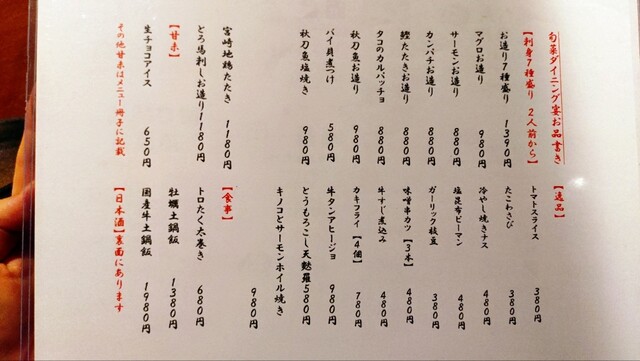 旬菜ダイニング宴お品書き
【刺身7種盛り 2人前から】
お造り7種盛り 1390円
マグロお造り 980円
サーモンお造り 880円
カンパチお造り 880円
鰹たたきお造り 880円
タコのカルパッチョ 880円
秋刀魚お造り 980円
バイ貝煮つけ 580円
秋刀魚塩焼き 980円
宮崎地鶏たたき 1180円
とろ馬刺しお造り 1180円
【甘味】
生チョコアイス 650円
その他甘味はメニュー冊子に記載
【逸品】
トマトスライス 380円
たこわさび 380円
冷やし焼きナス 480円
塩昆布ピーマン 480円
ガーリック枝豆 380円
味噌串カツ【3本】 480円
牛すじ煮込み 480円
カキフライ【4個】 780円
牛タンアヒージョ 980円
とうもろこし天麩羅 580円
キノコとサーモンホイル焼き
980円
【食事】
トロたく太巻き 680円
牡蠣土鍋飯 1380円
国産牛土鍋飯 1980円
【日本酒】裏面にあります